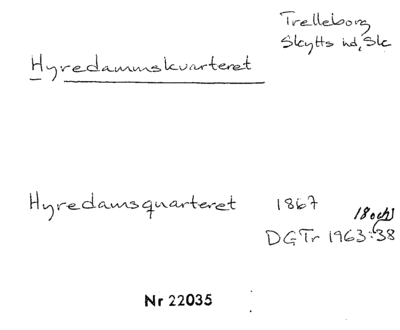 Trelleborg
Skytts hd, Sk
Hyredammskvarteret
Hyredamsquarteret 1867
18 och
DGTr 1963:38
Nr 22035